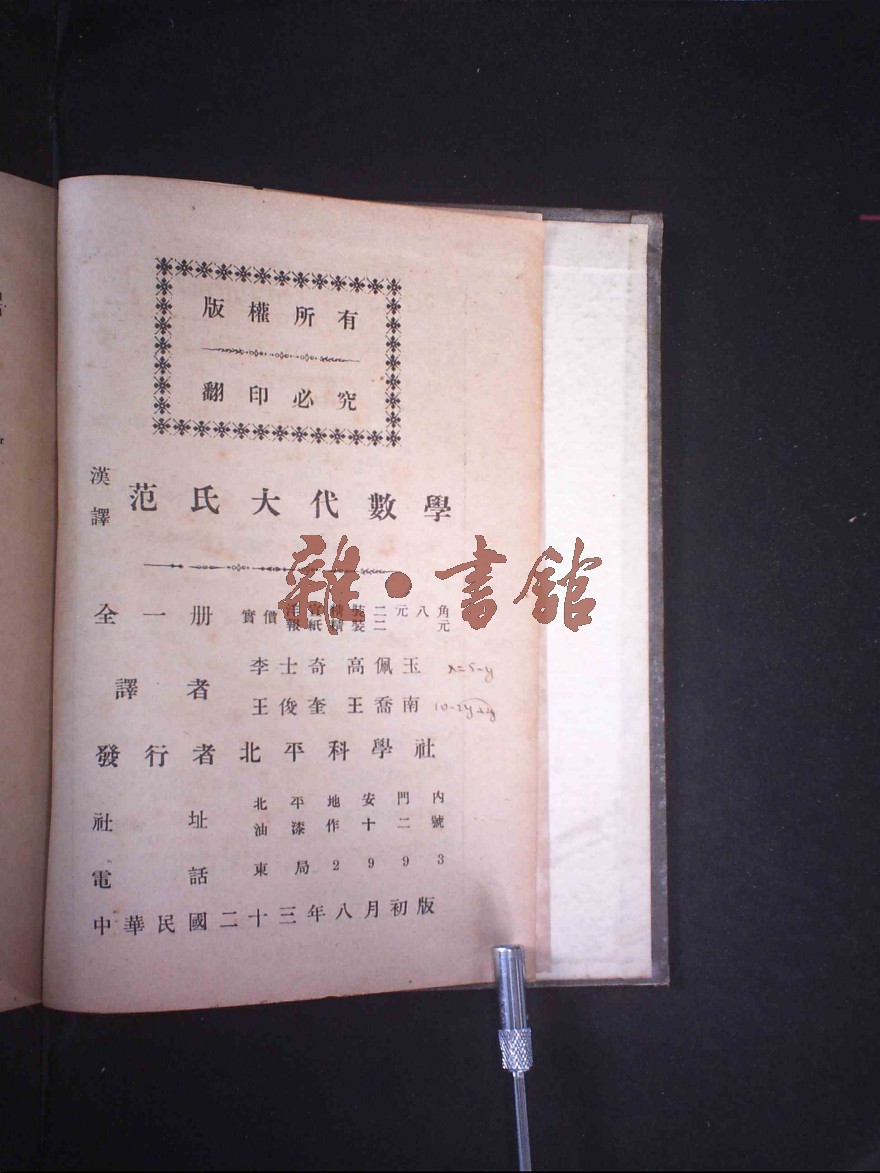 版權所有
翻印必究
漢譯 范氏大代數學
雜·書館
全一册 實價 洋宣精裝二元八角
報紙精裝二元
譯者 李士奇 高佩玉
王俊奎 王喬南
x=5-y
10-2y+2y
發行者北平科學社
社址 北平地安門內
油漆作十二號
電話 東局2993
中華民國二十三年八月初版